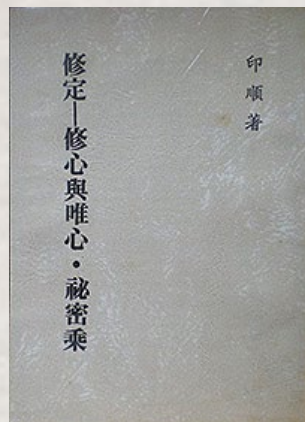 印順著
修定─修心與唯心・祕密乘